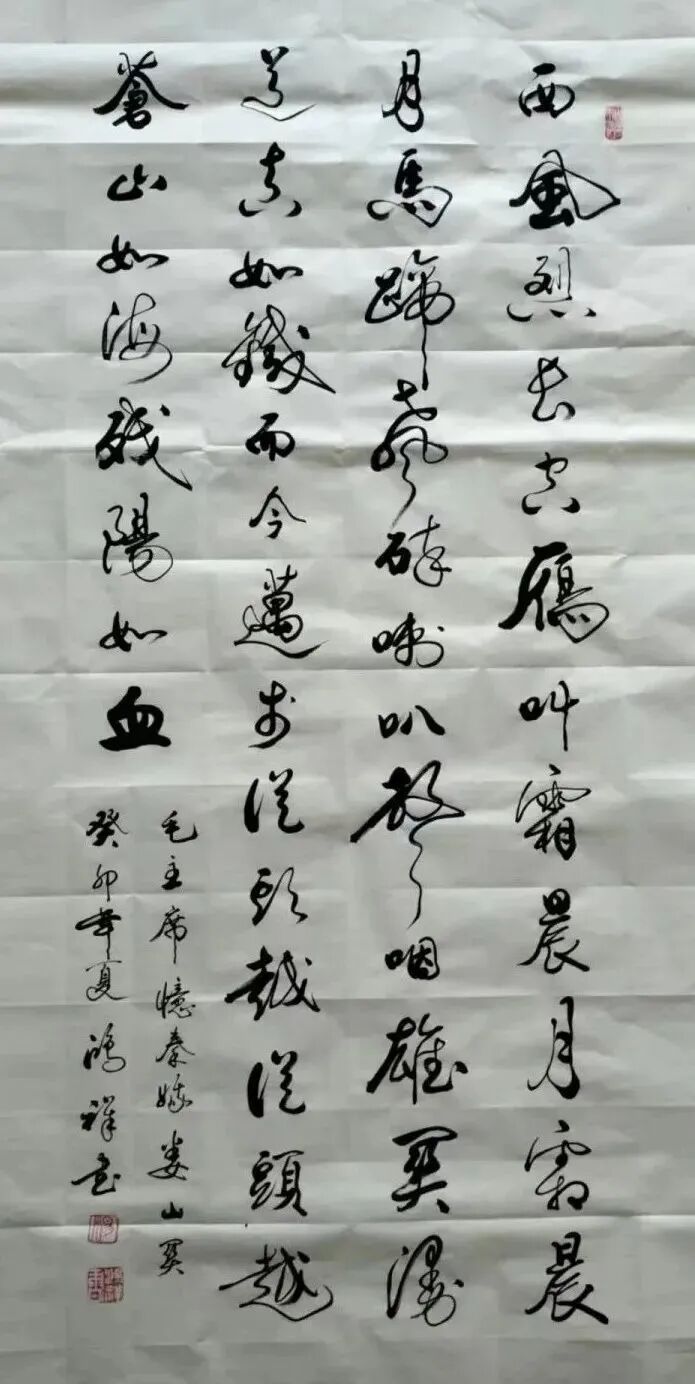 西風烈長空鴈叫霜晨月霜晨
月馬蹄聲碎喇叭聲咽雄關漫
道真如鐵而今邁步從頭越從頭越
蒼山如海殘陽如血
毛主席憶秦娥婁山關
癸卯年夏鴻祥書